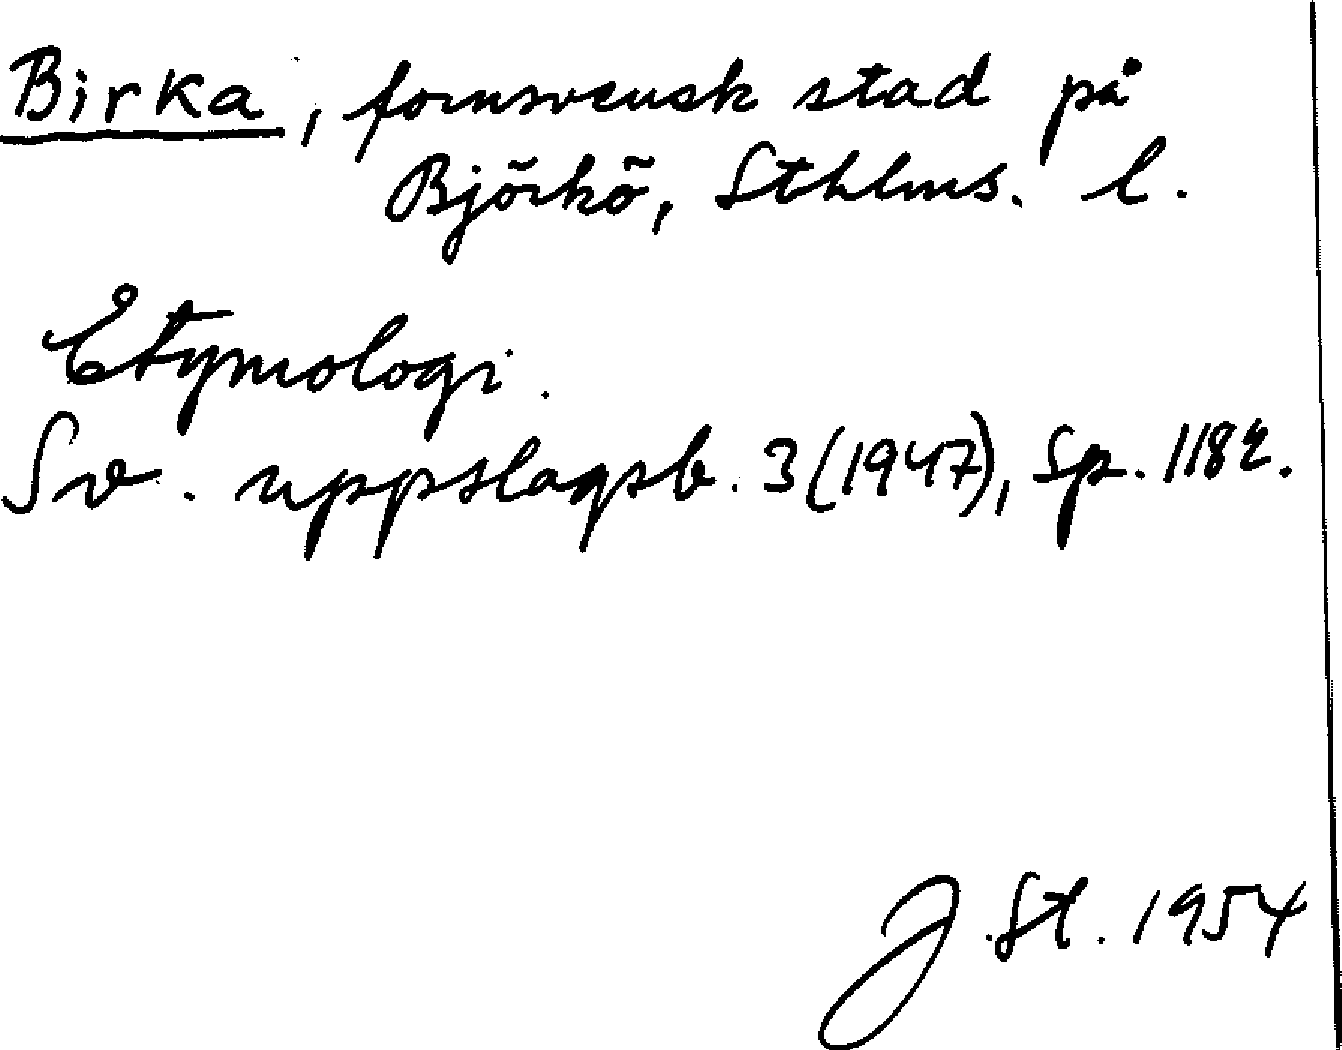 Birka, fornsvensk stad på
Björkö, Sthlms. l.
Etymologi.
Sv. uppslagsb. 3 (1947), sp. 1182.
J. St. 1954